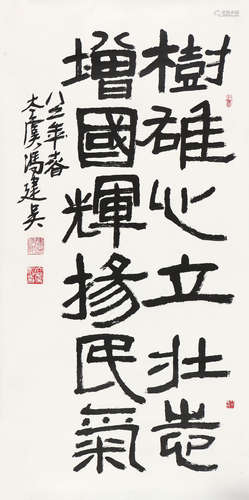 樹雄心立壯志
增國輝揚民氣
八二年春
大虞馮建吳